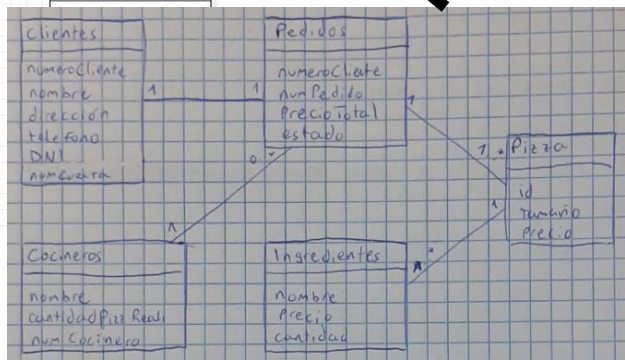 Clientes
numeroCliente
nombre
dirección
telefono
DNI
numCuenta
1
1
Pedidos
numeroCliente
numPedido
PrecioTotal
estado
1
1..*
Pizza
id
Tamaño
Precio
0..*
1
Cocineros
nombre
cantidadPizzReali
numCocinero
Ingredientes
nombre
Precio
cantidad
1